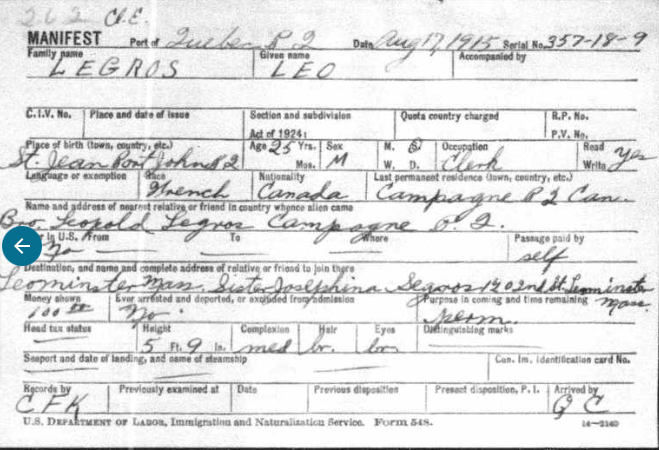 262 Cl.E.
MANIFEST Port of Quebec P Q Date Aug 17, 1915 Serial No. 357-18-9
Family name Given name Accompanied by
LEGROS LEO
C.I.V. No. Place and date of issue Section and subdivision Quota country charged R.P. No.
Act of 1924: P.V. No.
Place of birth (town, country, etc.) Age 25 Yrs. Sex M. S. Occupation Read Yes
St. Jean Port John P Q Mos. M W. D. Clerk Write
Language or exemption Race Nationality Last permanent residence (town, country, etc.)
French Canada Campagne P Q Can.
Name and address of nearest relative or friend in country whence alien came
Bro. Leopold Legros Campagne P. Q.
in U.S. From To Where Passage paid by
No self
Destination, and name and complete address of relative or friend to join there
Leominster Mass. Sister Josephina Legros 120 2nd St. Leominster
Money shown Ever arrested and deported, or excluded from admission Purpose in coming and time remaining Mass.
100 No. Perm.
Head tax status Height Complexion Hair Eyes Distinguishing marks
5 Ft. 9 In. med br. br.
Seaport and date of landing, and name of steamship Con. Im. Identification card No.
Records by Previously examined at Date Previous disposition Present disposition, P. I. Arrived by
CFK QC
U.S. DEPARTMENT OF LABOR, Immigration and Naturalization Service. Form 548. 14—2140